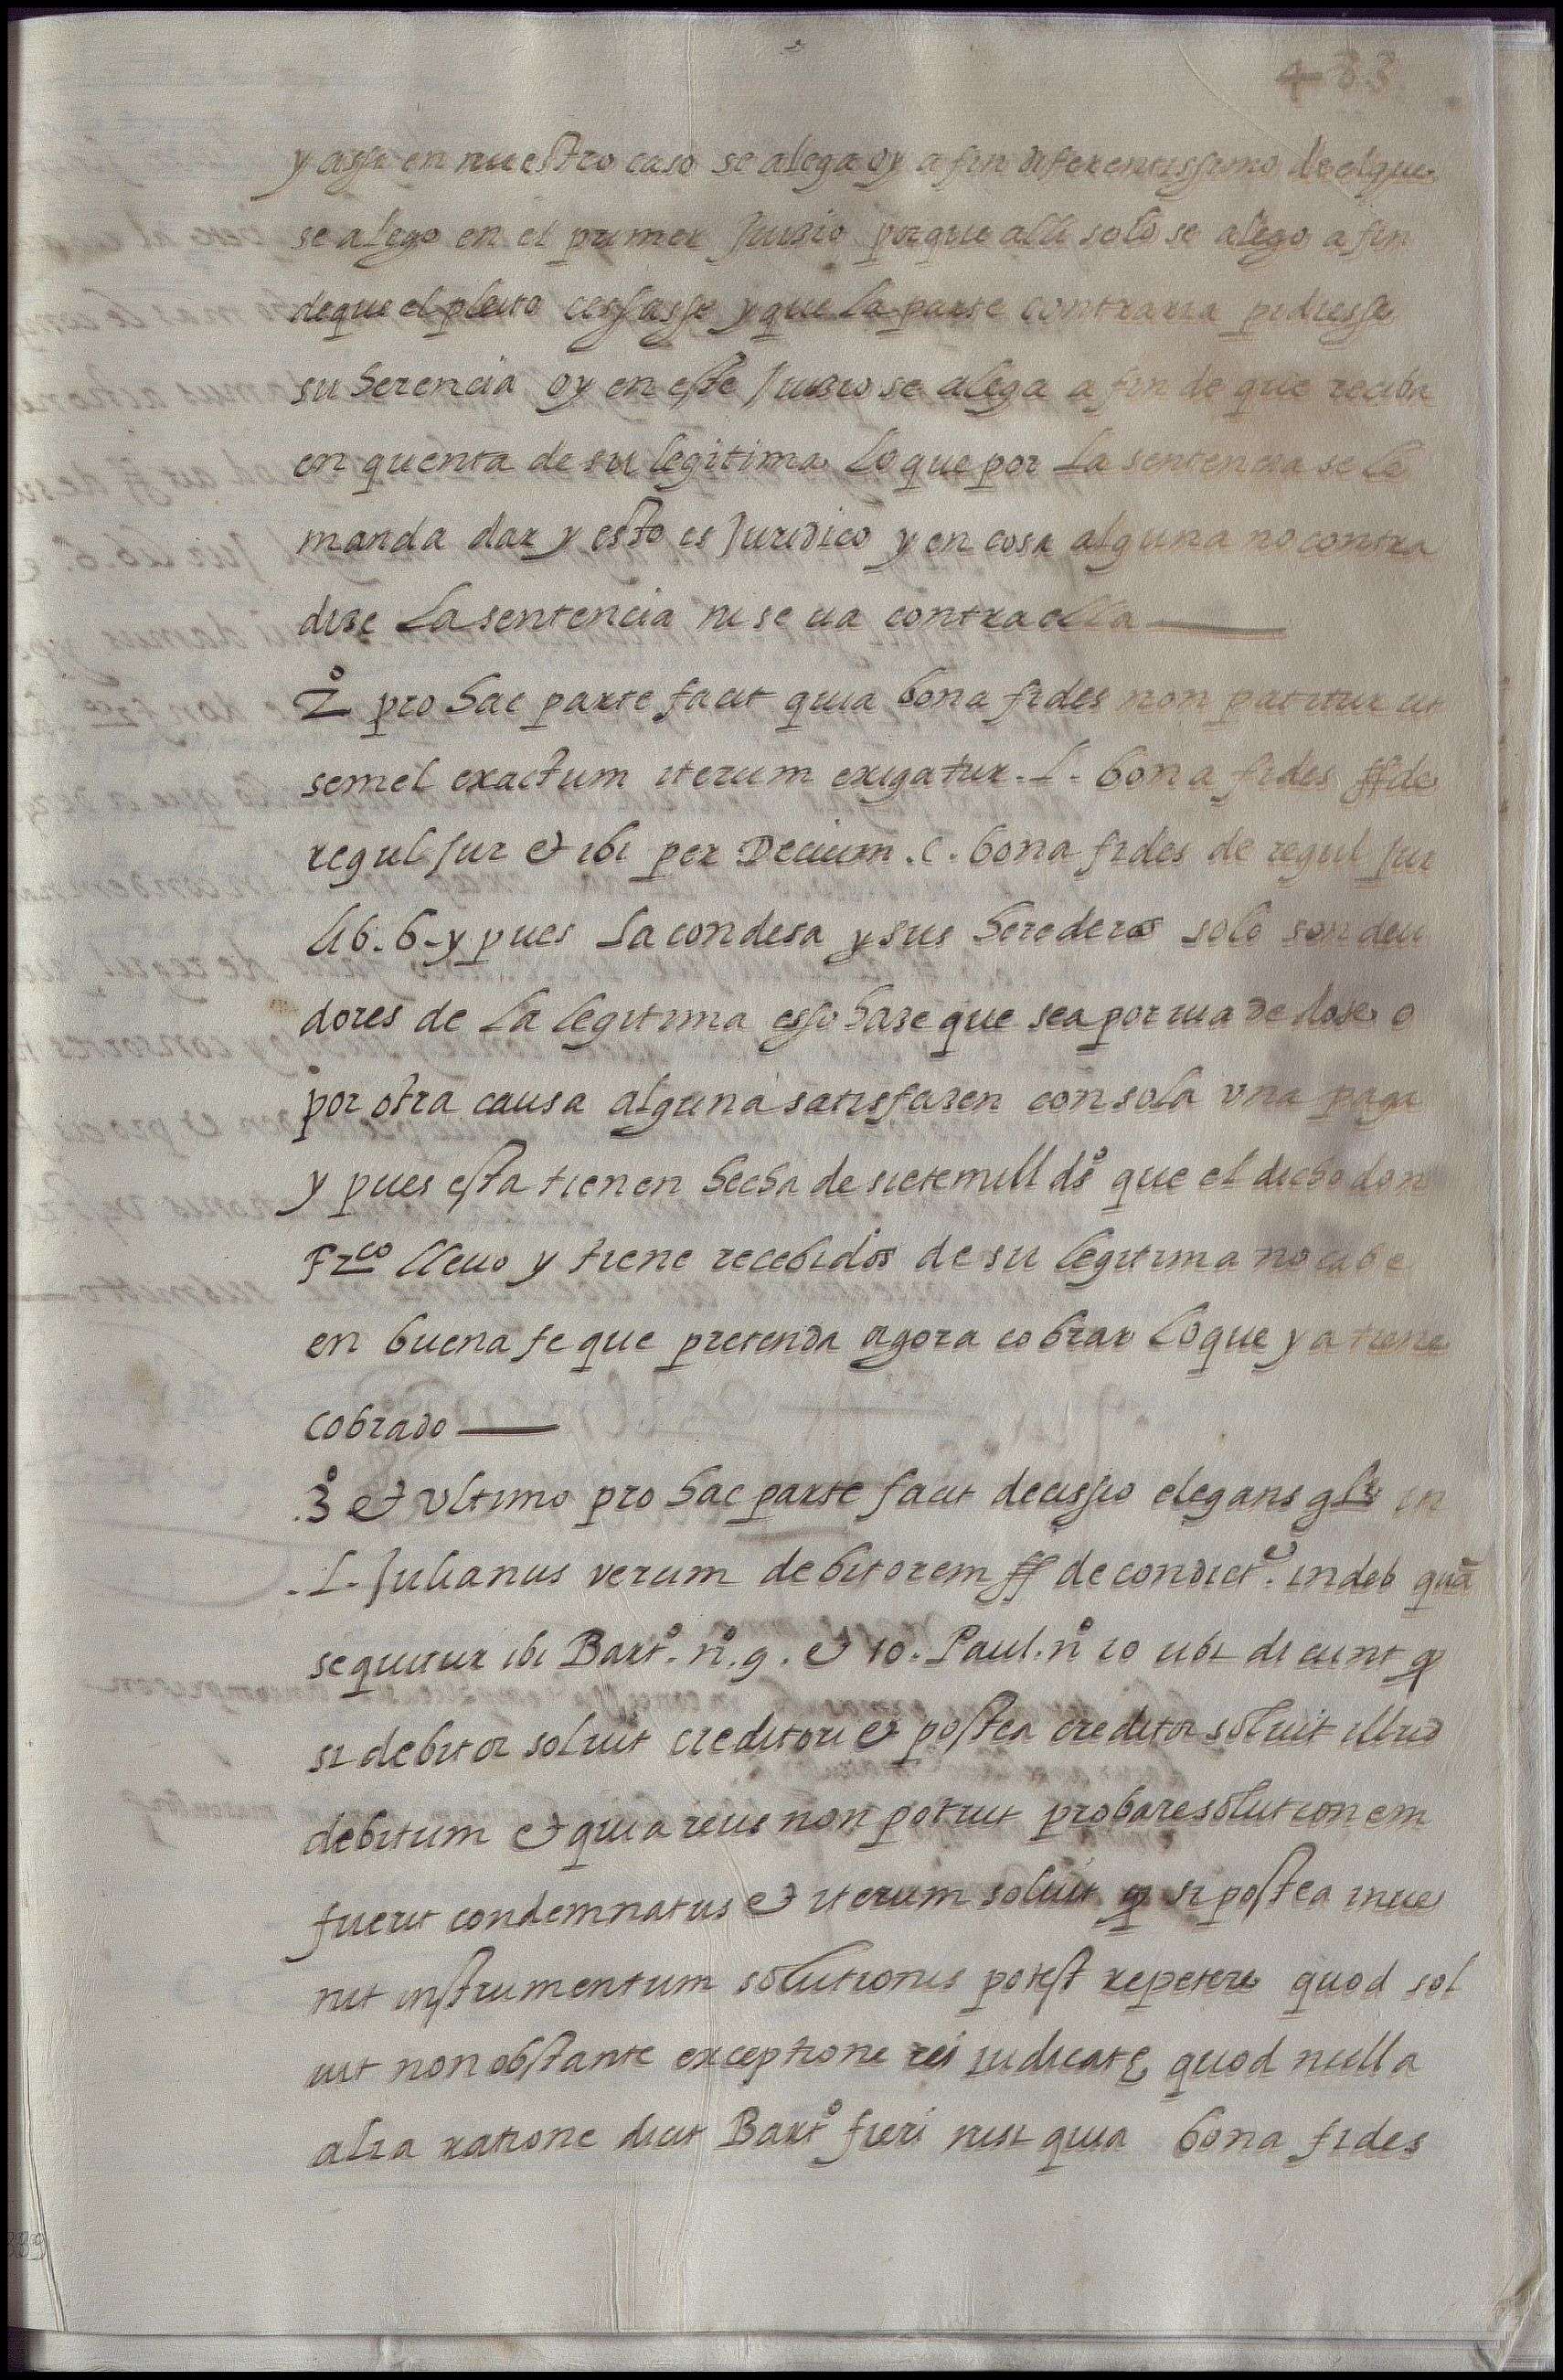 483
y assi en nuestro caso se alega oy a fin diferentissimo de el que
se alego en el primer Juizio porque alli solo se alego a fin
de que el pleito cessasse y que la parte contraria pidiesse
su herencia oy en este Juizio se alega a fin de que reciba
en quenta de su legitima lo que por la sentencia se le
manda dar y esto es Juridico y en cosa alguna no contra
dize la sentencia ni se ua contra ella
2º pro hac parte facit quia bona fides non patitur ut
semel exactum iterum exigatur. L. bona fides ff de
regul Jur et ibi per Decium. C. bona fides de regul Jur
lib. 6. y pues la condesa y sus herederos solo son deu
dores de la legitima esso haze que sea por uia de dose o
por otra causa alguna satisfazen con sola una paga
y pues esta tienen hecha de siete mill dsº que el dicho don
Frco lleuo y tiene recebidos de su legitima no cabe
en buena fe que pretenda agora cobrar lo que ya tiene
cobrado
3º et vltimo pro hac parte facit decissio elegans glr in
L. Julianus verum debitorem ff de condict. indeb quā
sequitur ibi Bartº. nº. 9. et 10. Paul. nº 10 ubi dicunt q
si debitor soluit creditori et postea creditor soluit illud
debitum et quia reus non potuit probare solutionem
fuerit condemnatus et iterum soluit q si postea inue
nit instrumentum solutionis potest repetere quod sol
uit non obstante exceptione rei iudicatę quod nulla
alia ratione dicit Bartº fieri nisi quia bona fides